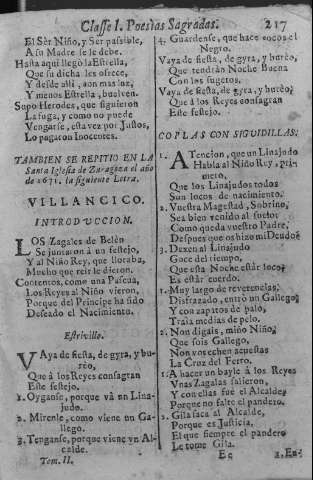 Classe I. Poesias Sagradas. 217
El Sèr Niño, y Ser passible,
A su Madre se le debe.
Hasta aqui llegò la Estrella,
Que su dicha les ofrece,
Y desde alli, aon mas luz,
Y menos Estrella, buelven.
Supo Herodes, que siguieron
La fuga, y como no puede
Vengarse, esta vez por Justos,
Lo pagaron Inocentes.
TAMBIEN SE REPITIO EN LA
Santa Iglesia de Zaragoza el año
de 1671. la siguiente Letra.
VILLANCICO.
INTRODUCCION.
LOS Zagales de Belèn
Se juntaron à un festejo,
Y al Niño Rey, que lloraba,
Mucho que reir le dieron.
Contentos, como una Pascua,
Los Reyes al Niño vieron,
Porque del Principe ha sido
Deseado el Nacimiento.
Estrivillo.
VAya de fiesta, de gyra, y bu-
rèo,
Que à los Reyes consagran
Este festejo.
1. Oyganse, porque và un Lina-
judo.
2. Mirenle, como viene un Ga-
llego.
3. Tenganse, porque viene vn Al-
calde.
Tom. II.
4. Guardense, que hace cocos el
Negro.
Vaya de fiesta, de gyra, y burèo,
Que tendràn Noche Buena
Con los sugetos.
Vaya de fiesta, de gyra, y burèo;
Que à los Reyes consagran
Este festejo.
COPLAS CON SIGUIDILLAS.
1. ATencion, que un Linajudo
Habla al Niño Rey, pri-
mero,
Que los Linajudos todos
Sun locos de nacimiento.
2. Vuestra Magestad, Sobrino,
Sea bien venido al suelo
Como queda vuestro Padre,
Despues que os hizo mi Deudo?
3. Dexen al Linajudo
Goce del tiempo,
Que esta Noche estàr locos
Es estàr cuerdo.
1. Muy largo de reverencias,
Disfrazado, entrò un Gallego
Y con zapatos de palo,
Traìa medias de pelo.
2. Non digais, miño Niño,
Que sois Gallego,
Non vos echen acuestas
La Cruz del Ferro.
1. A hacer un bayle à los Reyes
Vnas Zagalas salieron,
Y con ellas fué el Alcalde,
Porque no falte el pandero.
2. Gila faca al Alcalde,
Porque es Justicia,
El que siempre el pandero
Le tome Gila.
Ee 2. En-